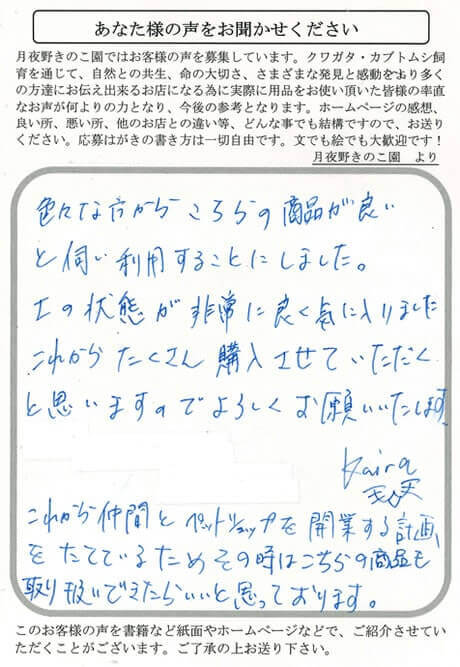 あなた様の声をお聞かせください
月夜野きのこ園ではお客様の声を募集しています。クワガタ・カブトムシ飼
育を通じて、自然との共生、命の大切さ、さまざまな発見と感動をより多く
の方達にお伝え出来るお店になる為に実際に用品をお使い頂いた皆様の率直
なお声が何よりの力となり、今後の参考となります。ホームページの感想、
良い所、悪い所、他のお店との違い等、どんな事でも結構ですので、お送り
ください。応募はがきの書き方は一切自由です。文でも絵でも大歓迎です！
月夜野きのこ園　より
色々な方からこちらの商品が良い
と伺い利用することにしました。
土の状態が非常に良く気に入りました
これからたくさん購入させていただく
と思いますのでよろしくお願いいたします
Kaira
これから仲間とペットショップを開業する計画
をたてているためその時はこちらの商品も
取り扱いできたらいいと思っております。
このお客様の声を書籍など紙面やホームページなどで、ご紹介させてい
ただくことがございます。ご了承の上お送り下さい。